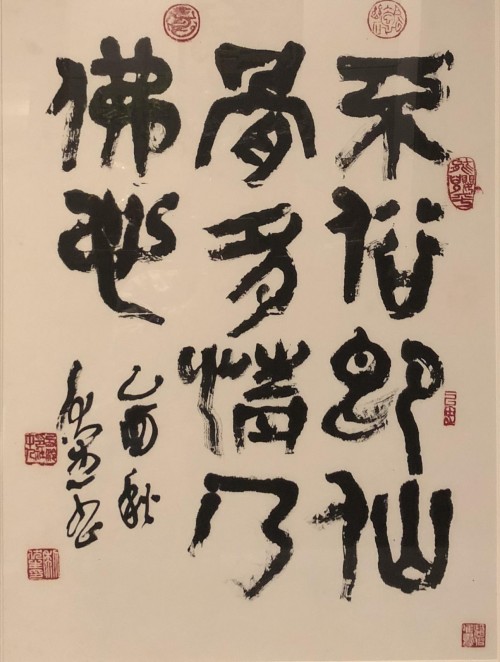 不俗即仙
骨多情乃
佛心
乙酉秋
书